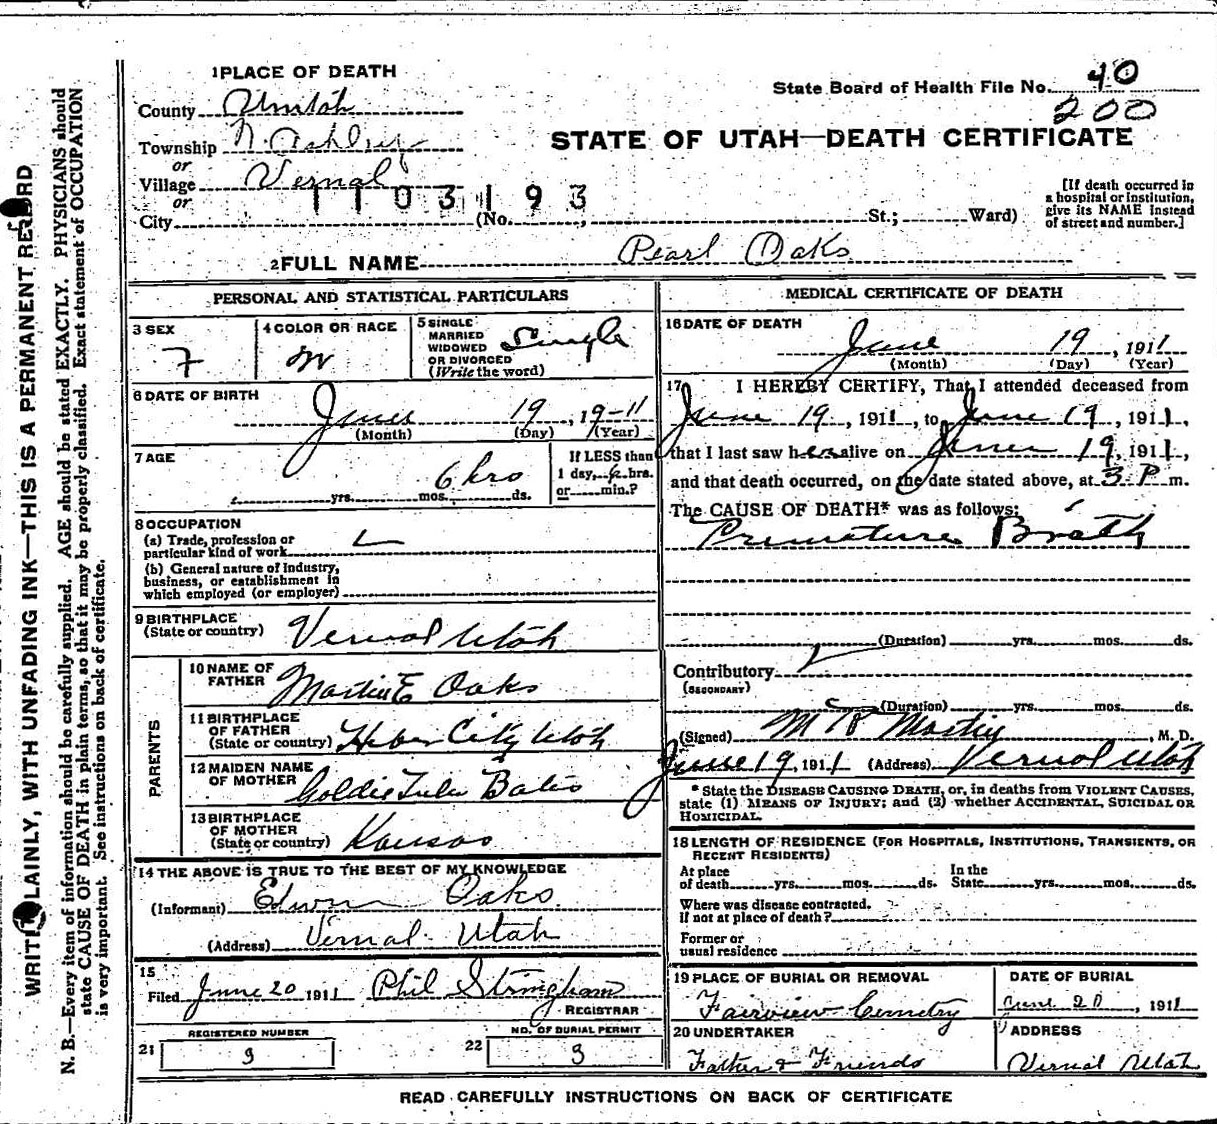 WRITE PLAINLY, WITH UNFADING INK—THIS IS A PERMANENT RECORD
N. B.—Every item of information should be carefully supplied. AGE should be stated EXACTLY. PHYSICIANS should
state CAUSE OF DEATH in plain terms, so that it may be properly classified. Exact statement of OCCUPATION
is very important. See instructions on back of certificate.
1 PLACE OF DEATH
State Board of Health File No. 40
200
County Uintah
STATE OF UTAH—DEATH CERTIFICATE
Township N. Ashley
or
Village Vernal
or
1103193
City (No. , St.; Ward)
[If death occurred in
a hospital or institution,
give its NAME instead
of street and number.]
2 FULL NAME Pearl Oaks
PERSONAL AND STATISTICAL PARTICULARS
3 SEX
F
4 COLOR OR RACE
W
5 SINGLE
MARRIED
WIDOWED
OR DIVORCED
(Write the word)
Single
6 DATE OF BIRTH
June 19, 19-11
(Month) (Day) (Year)
7 AGE
6 hrs
yrs. mos. ds.
If LESS than
1 day, 6 hrs.
or min.?
8 OCCUPATION
(a) Trade, profession or
particular kind of work
(b) General nature of Industry,
business, or establishment in
which employed (or employer)
9 BIRTHPLACE
(State or country) Vernal Utah
PARENTS
10 NAME OF
FATHER Martin E Oaks
11 BIRTHPLACE
OF FATHER
(State or country) Heber City Utah
12 MAIDEN NAME
OF MOTHER Goldie Lulu Bates
13 BIRTHPLACE
OF MOTHER
(State or country) Kansas
14 THE ABOVE IS TRUE TO THE BEST OF MY KNOWLEDGE
(Informant) Edwin Oaks
(Address) Vernal Utah
15
Filed June 20 1911 Phil Stringham
REGISTRAR
REGISTERED NUMBER
21 9
NO. OF BURIAL PERMIT
22 9
MEDICAL CERTIFICATE OF DEATH
16 DATE OF DEATH
June 19, 1911
(Month) (Day) (Year)
17 I HEREBY CERTIFY, That I attended deceased from
June 19, 1911, to June 19, 1911,
that I last saw her alive on June 19, 1911,
and that death occurred, on the date stated above, at 3 P m.
The CAUSE OF DEATH* was as follows:
Premature Birth
(Duration) yrs. mos. ds.
Contributory
(SECONDARY)
(Duration) yrs. mos. ds.
(Signed) M. D.
June 19, 1911 (Address) Vernal Utah
* State the DISEASE CAUSING DEATH, or, in deaths from VIOLENT CAUSES,
state (1) MEANS OF INJURY; and (2) whether ACCIDENTAL, SUICIDAL OR
HOMICIDAL.
18 LENGTH OF RESIDENCE (FOR HOSPITALS, INSTITUTIONS, TRANSIENTS, OR
RECENT RESIDENTS)
At place
of death yrs. mos. ds.
In the
State yrs. mos. ds.
Where was disease contracted,
if not at place of death?
Former or
usual residence
19 PLACE OF BURIAL OR REMOVAL
Fairview Cemetry
DATE OF BURIAL
June 20, 1911
20 UNDERTAKER
Father & Friends
ADDRESS
Vernal Utah
READ CAREFULLY INSTRUCTIONS ON BACK OF CERTIFICATE